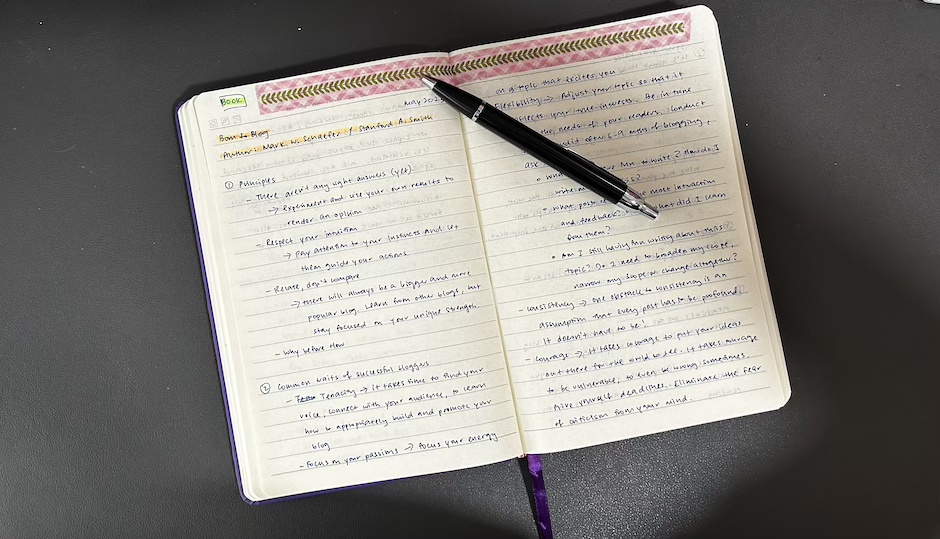 BOOK
May 202
Born to Blog
Author: Mark W. Schaefer / Stanford A. Smith
① Principles
- There aren't any right answers (yet)
→ Experiment and use your own results to
render an opinion
- Respect your intuition
→ Pay attention to your instincts and let
them guide your actions.
- Relate, don't compare
→ there will always be a bigger and more
popular blog. Learn from other blogs, but
stay focused on your unique strength.
- Why before How
② Common traits of successful bloggers
- Tenacity → it takes time to find your
voice, connect with your audience, to learn
how to appropriately build and promote your
blog
- Focus on your passions → focus your energy
on a topic that excites you
Flexibility → Adjust your topic so that it
reflects your true interests. Be in tune
the needs of your readers. Conduct
audit after 6-9 mths of blogging,
ask
• What fun to write? How do I
write s?
• What pos most interaction
and feedback? What did I learn
from them?
• Am I still having fun writing about this
topic? Do I need to broaden my scope,
narrow my scope or change altogether?
- Consistency → one obstacle to consistency is an
assumption that every post has to be profound.
It doesn't have to be!
- Courage → it takes courage to put your ideas
out there for the world to see. It takes courage
to be vulnerable, to even be wrong sometimes.
Give yourself deadlines. Eliminate the fear
of criticism from your mind.